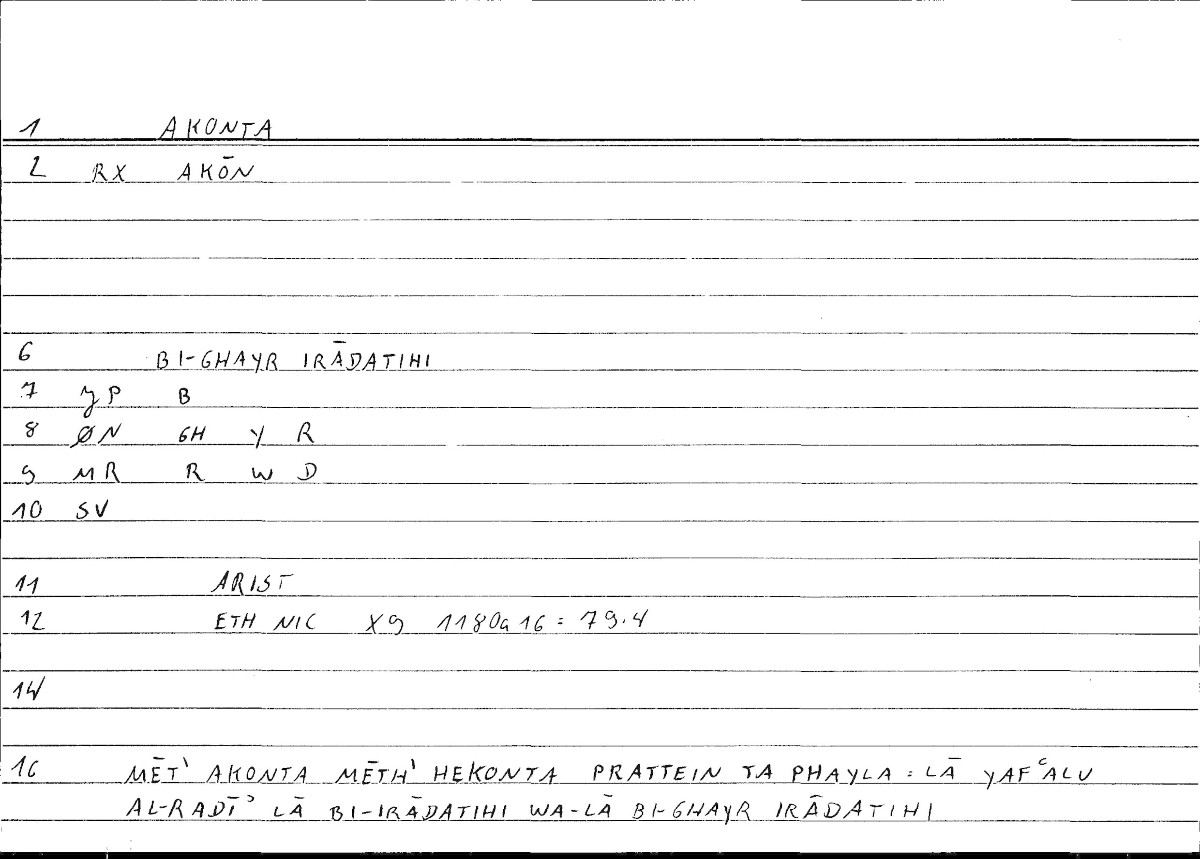 1 AKONTA
2 RX AKŌN
6 BI-GHAYR IRĀDATIHI
7 yP B
8 ØN GH Y R
9 MR R W D
10 SV
11 ARIST
12 ETH NIC X9 1180a16 = 79.4
14
16 MĒT' AKONTA MĒTH' HEKONTA PRATTEIN TA PHAYLA = LĀ YAFʿALU
AL-RADĪʾ LĀ BI-IRĀDATIHI WA-LĀ BI-GHAYR IRĀDATIHI